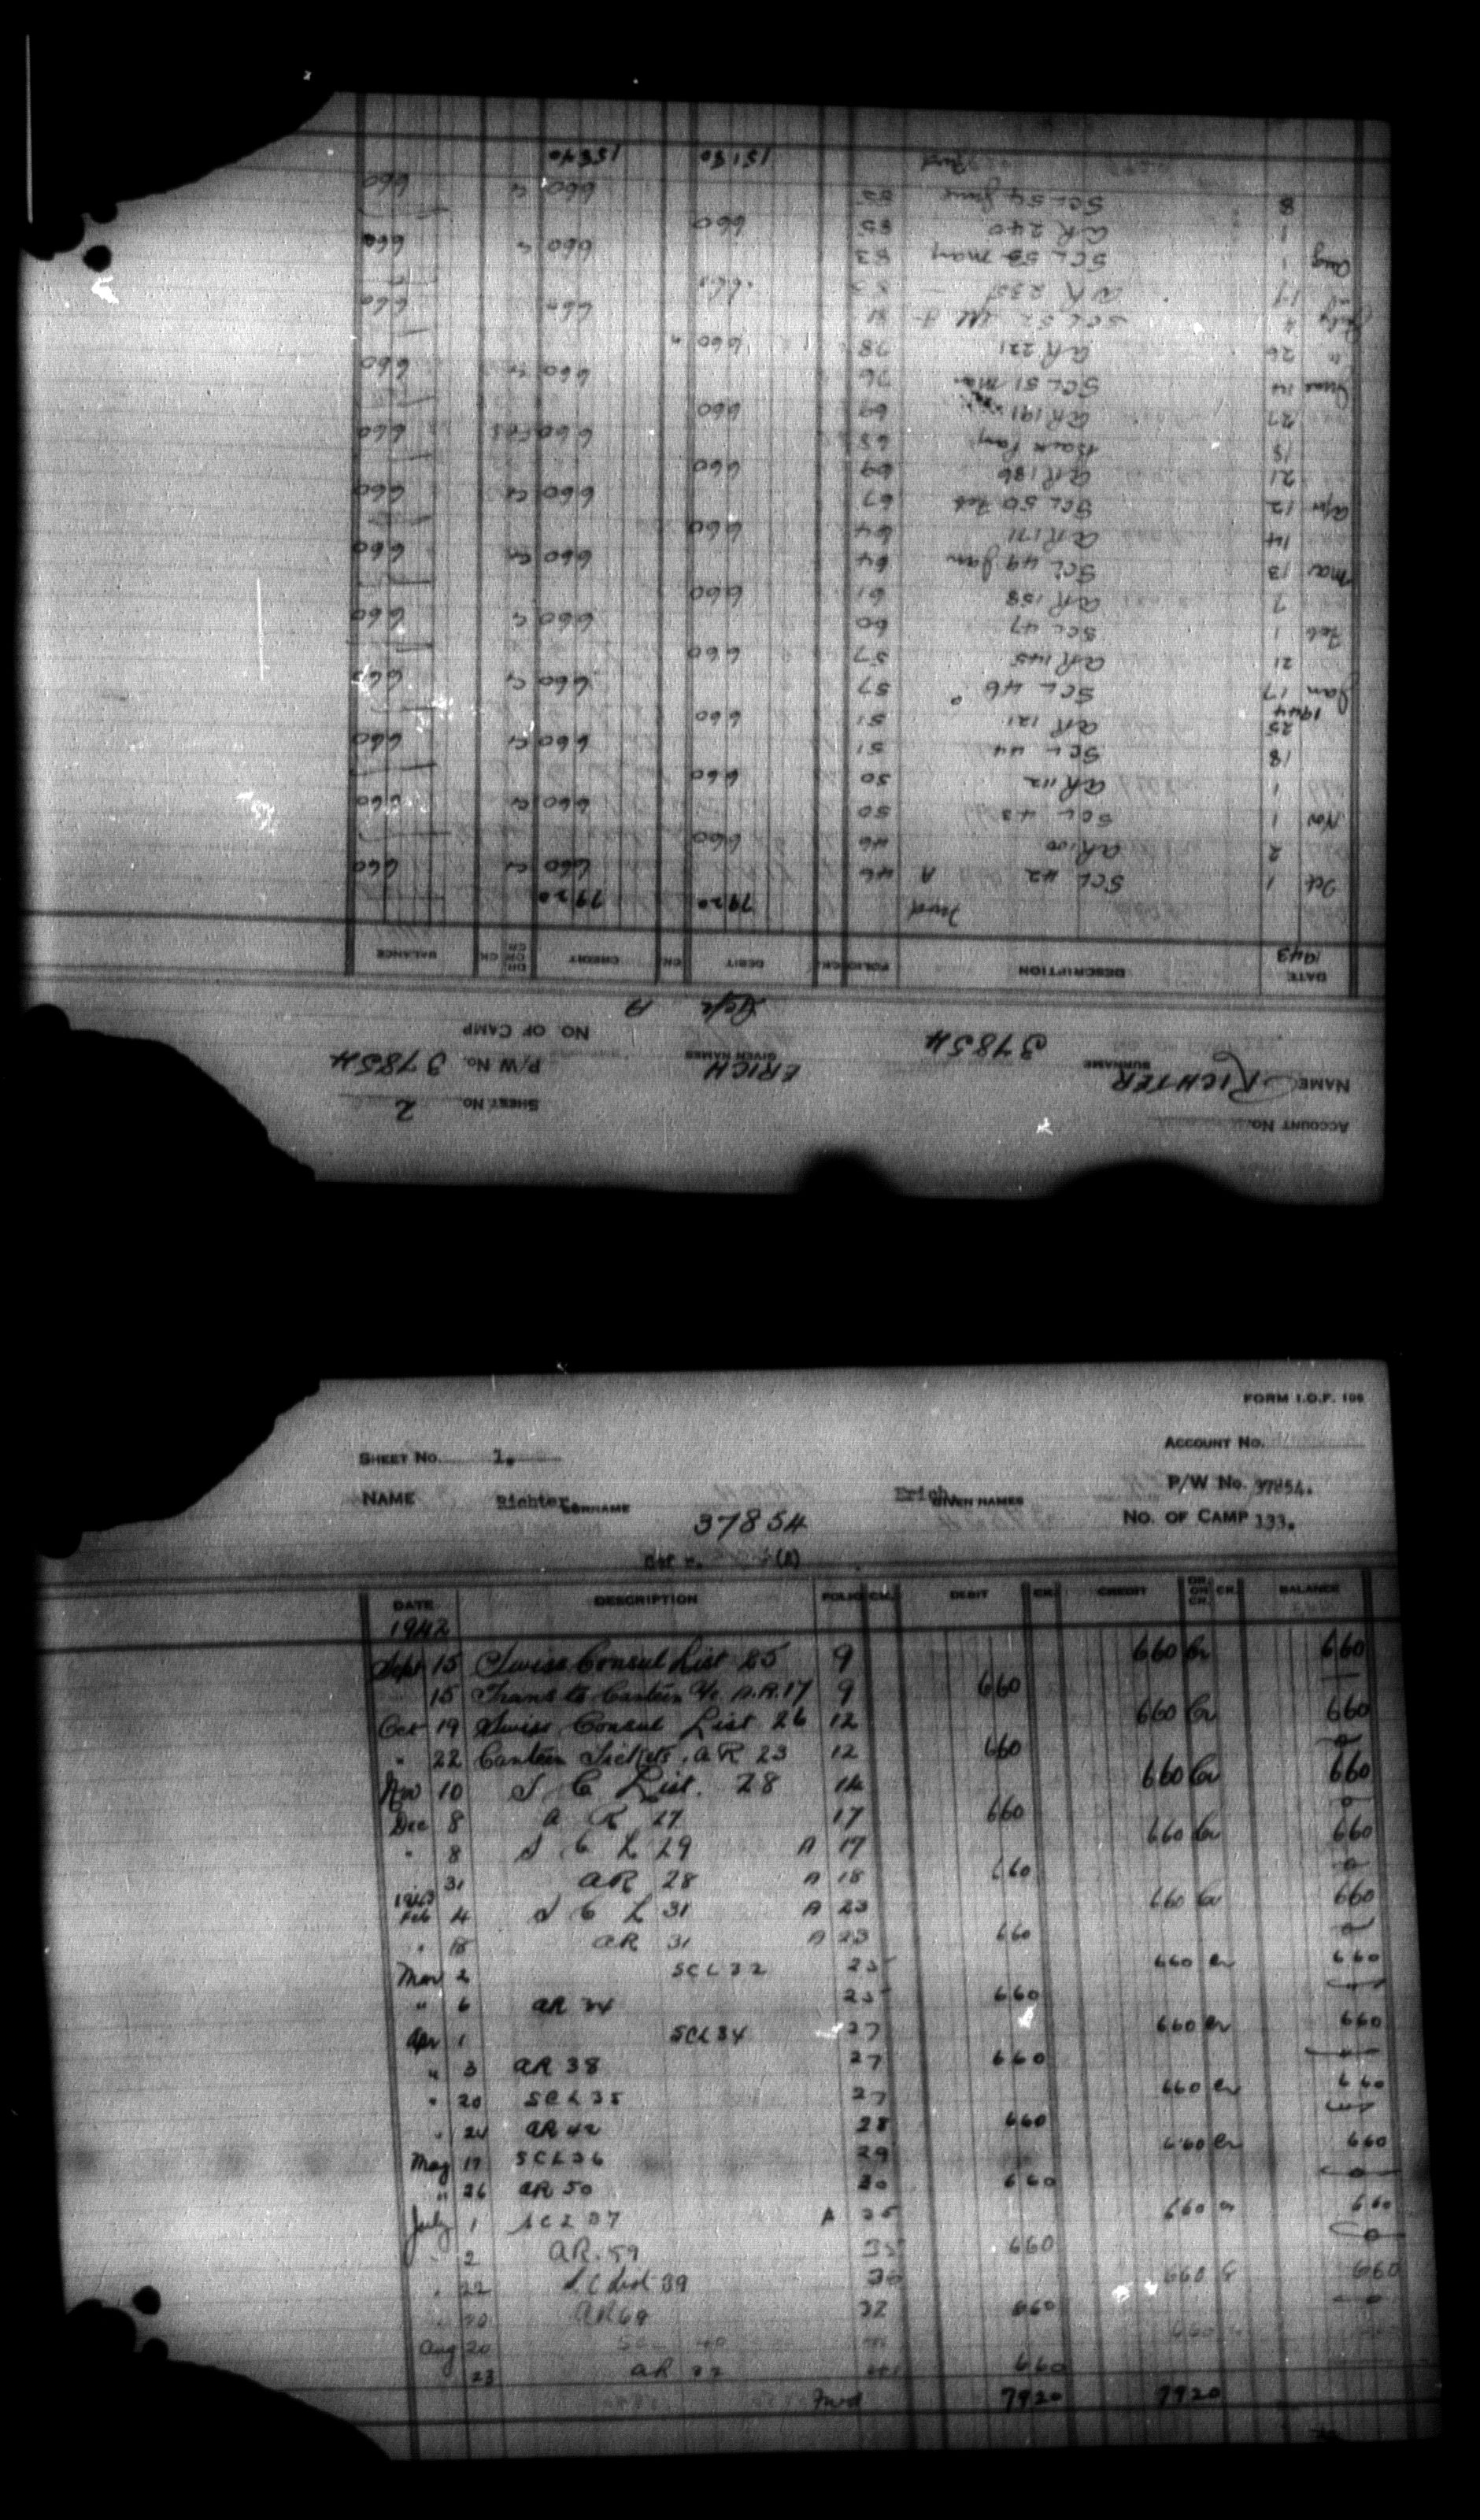 FORM I.O.F. 106
SHEET No. 1. ACCOUNT No.
NAME Richter, SURNAME Erich GIVEN NAMES P/W No. 37854.
37854 NO. OF CAMP 133.
DATE DESCRIPTION FOLIO CK. DEBIT CK. CREDIT DR. OR CR. CK. BALANCE
1942
Sept 15 Swiss Consul List 25 9 660 Cr 660
15 Trans to Canteen A/c A.R. 17 9 660 —
Oct 19 Swiss Consul List 26 12 660 Cr 660
" 22 Canteen Tickets, AR 23 12 660 0
Nov 10 S C List. 28 14 660 Cr 660
Dec 8 A R 27 17 660 0
" 8 S C L 29 A 17 660 Cr 660
31 AR 28 A 18 660 0
1943
Feb 4 S C L 31 A 23 660 Cr 660
" 18 AR 31 A 23 660 0
Mar 2 SCL 32 25 660 Cr 660
" 6 AR 34 25 660
Apr 1 SCL 34 27 660 Cr 660
" 3 AR 38 27 660
" 20 SCL 35 27 660 Cr 660
" 24 AR 42 28 660
May 17 SCL 36 29 660 Cr 660
" 26 AR 50 30 660 0
July 1 SCL 37 A 35 660 Cr 660
" 2 AR. 59 35 660 0
" 22 S. C List 39 36 660 Cr 660
AR 69 660 0
Aug 20 660
23 AR 660
Fwd 7920 7920
ACCOUNT No. SHEET No. 2
NAME RICHTER SURNAME ERICH GIVEN NAMES P/W No. 37854
37854 A NO. OF CAMP
DATE DESCRIPTION FOLIO CK. DEBIT CK. CREDIT DR. OR CR. CK. BALANCE
1943
Fwd 7920 7920
Oct 1 SCL 42 A 46 660 Cr 660
2 AR 100 46 660
Nov 1 SCL 43 50 660 Cr 660
1 AR 112 50 660
18 SCL 44 51 660 Cr 660
25 AR 121 51 660
1944
Jan 17 SCL 46 57 660 Cr 660
21 AR 145 57 660
Feb 1 SCL 47 60 660 Cr 660
7 AR 158 61 660
Mar 13 SCL 49 Jan 64 660 Cr 660
14 AR 171 64 660
Apr 12 SCL 50 Feb 67 660 Cr 660
21 AR 186 69 660
18 Back Pay 68 660 660
27 AR 191 69 660
June 14 SCL 51 Mar 76 660 Cr 660
" 26 AR 221 78 660
July 4 SCL 52 81 660 660
17 AR 83 660
Aug 1 SCL 53 May 83 660 Cr 660
1 AR 240 85 660
8 SCL 54 June 85 660 Cr 660
Fwd 15180 15840